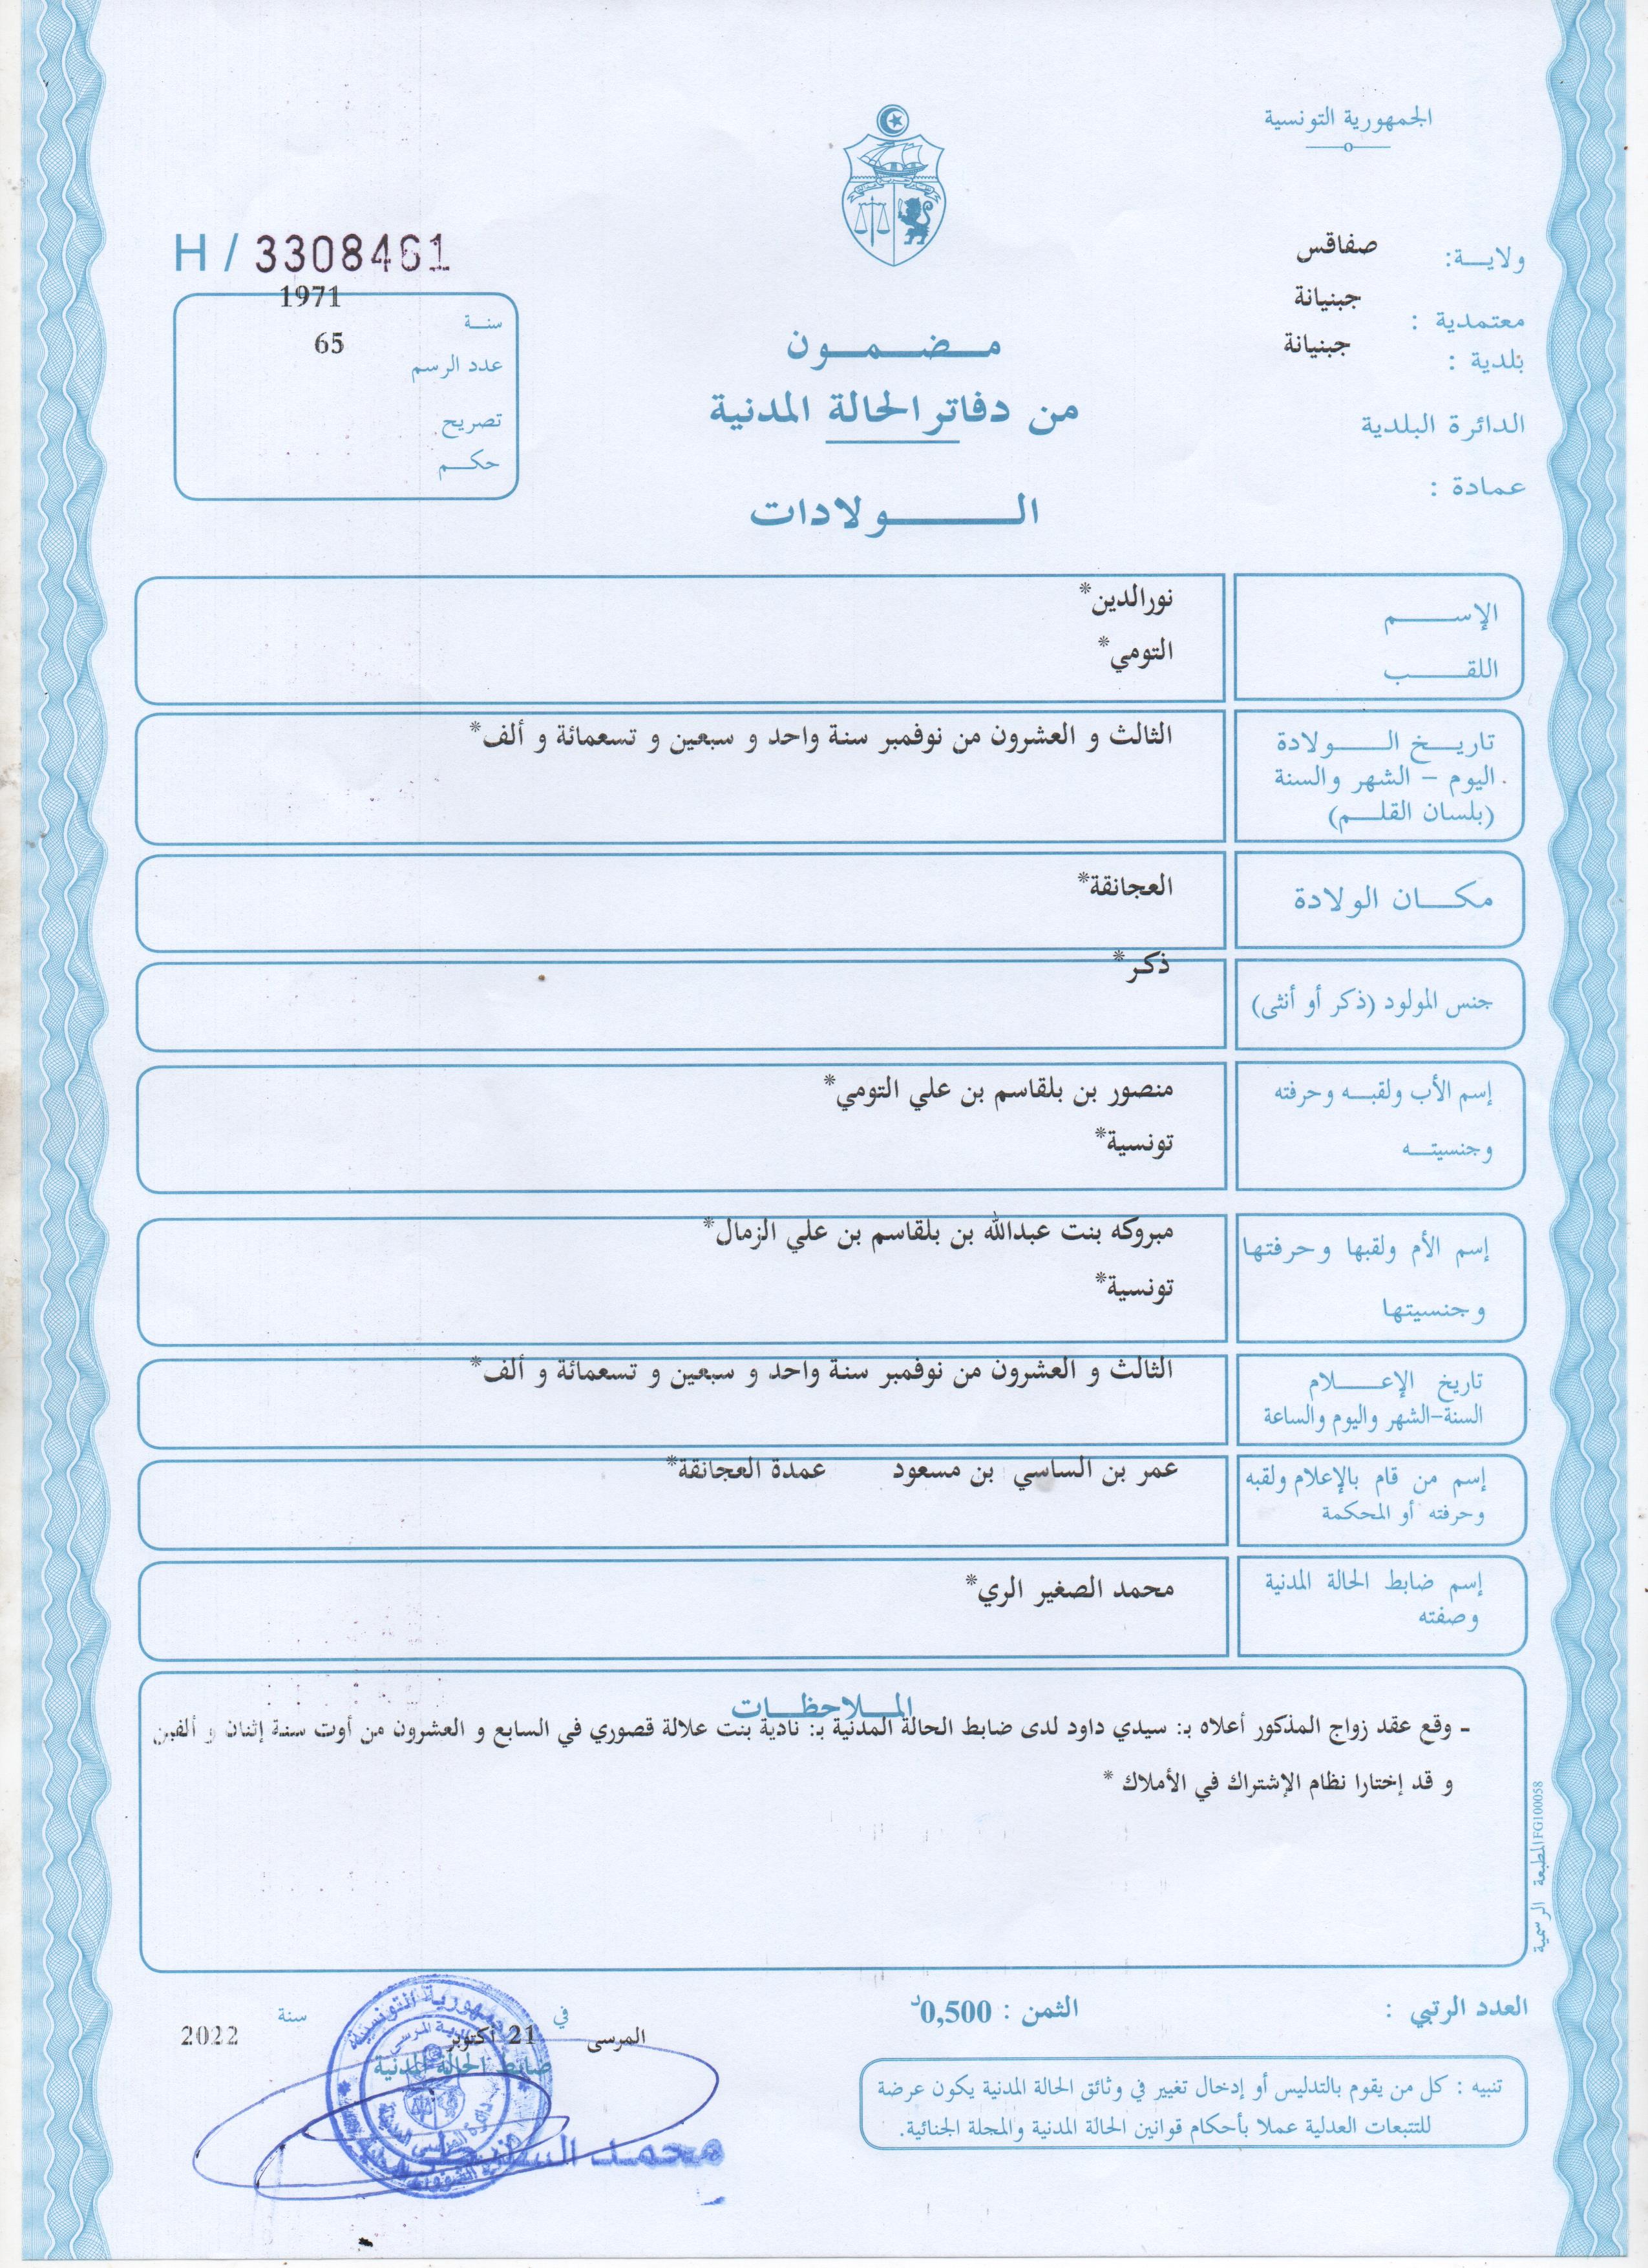 الجمهورية التونسية
ولاية: صفاقس
معتمدية : جبنيانة
بلدية : جبنيانة
الدائرة البلدية
عمادة :
H / 3308461
سنة 1971
عدد الرسم 65
تصريح
حكم
مضمون
من دفاتر الحالة المدنية
الولادات
الإسم نورالدين*
اللقب التومي*
تاريخ الولادة الثالث و العشرون من نوفمبر سنة واحد و سبعين و تسعمائة و ألف*
اليوم - الشهر والسنة
(بلسان القلم)
مكان الولادة العجانقة*
جنس المولود (ذكر أو أنثى) ذكر*
إسم الأب ولقبه وحرفته منصور بن بلقاسم بن علي التومي*
وجنسيته تونسية*
إسم الأم ولقبها وحرفتها مبروكه بنت عبدالله بن بلقاسم بن علي الزمال*
وجنسيتها تونسية*
تاريخ الإعلام الثالث و العشرون من نوفمبر سنة واحد و سبعين و تسعمائة و ألف*
السنة-الشهر واليوم والساعة
إسم من قام بالإعلام ولقبه عمر بن الساسي بن مسعود عمدة العجانقة*
وحرفته أو المحكمة
إسم ضابط الحالة المدنية محمد الصغير الري*
وصفته
الملاحظات
- وقع عقد زواج المذكور أعلاه بـ: سيدي داود لدى ضابط الحالة المدنية بـ: نادية بنت علالة قصوري في السابع و العشرون من أوت سنة إثنان و ألفين
و قد إختارا نظام الإشتراك في الأملاك *
المطبعة الرسمية FG100058
العدد الرتبي :
الثمن : 0,500د
المرسى في 21 أكتوبر سنة 2022
ضابط الحالة المدنية
الجمهورية التونسية
محمد
تنبيه : كل من يقوم بالتدليس أو إدخال تغيير في وثائق الحالة المدنية يكون عرضة
للتتبعات العدلية عملا بأحكام قوانين الحالة المدنية والمجلة الجنائية.